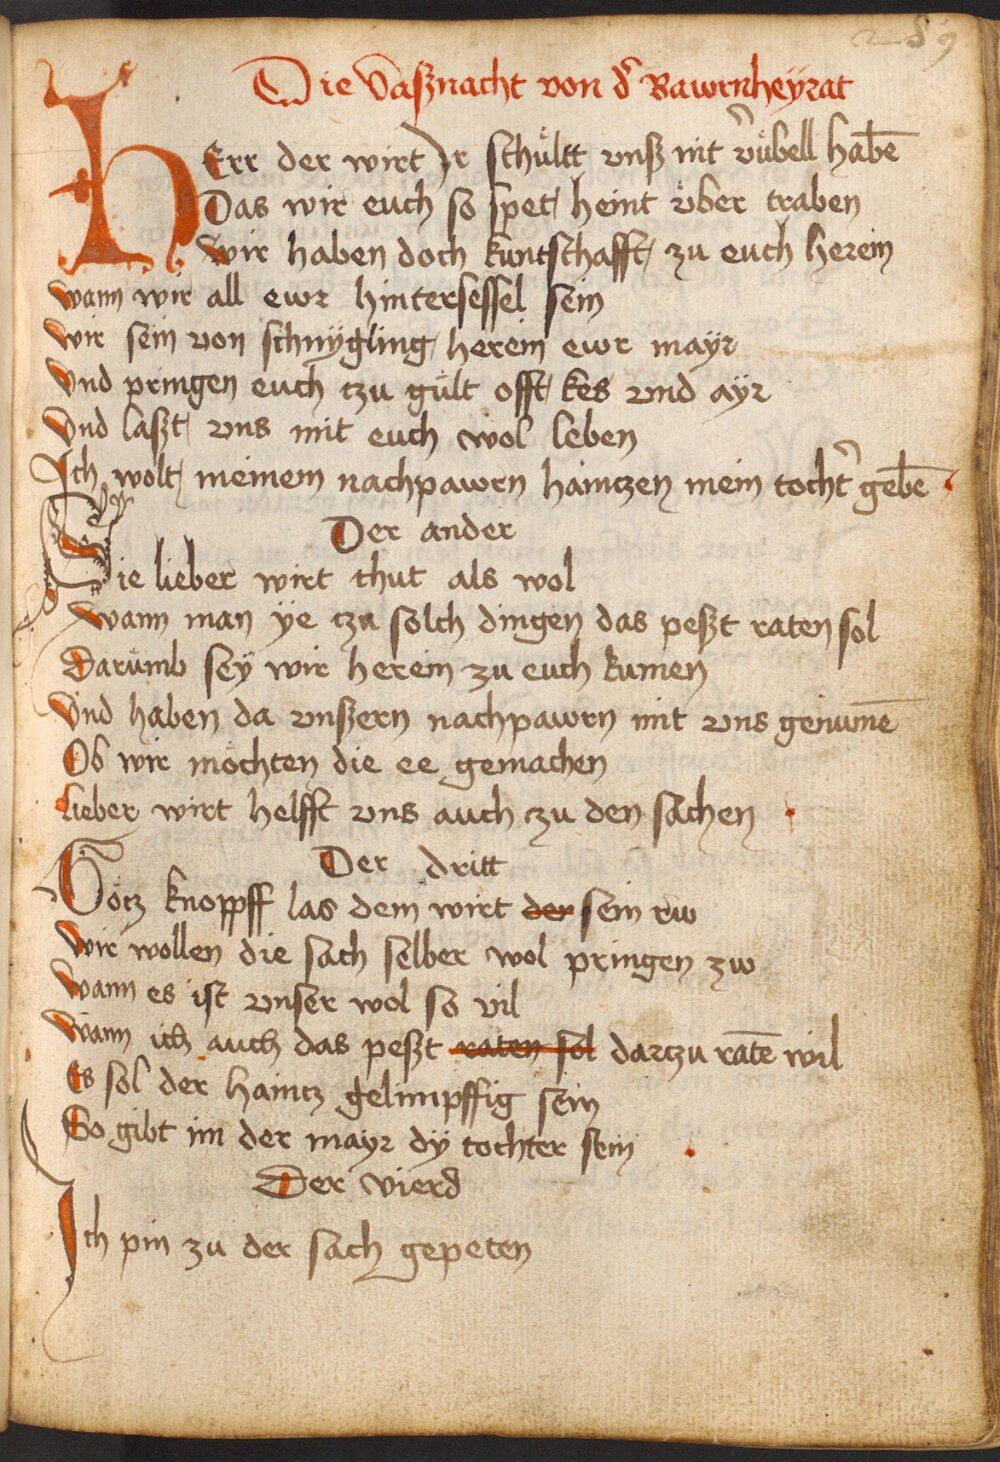 289
Die vasznacht von dʾ Bawrnheyrat
HErr der wirt Ir schültt vnsz nit vʾübell habē
Das wir euch so spet heint vͤber traben
wir haben doch kuntschafft zu euch herein
wann wir all ewr hintersessel sein
wir sein von schnÿgling herein ewr maÿr
Vnd pringen euch tzu gült offt kes vnd aÿr
Vnd laszt vns mit euch wol leben
Ich wolt meinem nachpawrn haintzen mein tochtʾ gebē
Der ander
Sie lieber wirt thut als wol
wann man ÿe tzu solch dingen das peszt raten sol
Darümb seÿ wir herein zu euch kumen
Vnd haben da vnszern nachpawrn mit vns genumē
Ob wir möchten die ee gemachen
lieber wirt helfft vns auch tzu den sachen
Der dritt
Götz knoppff las dem wirt der sein rw
wir wollen die sach selber wol pringen zw
wann es ist vnser wol so vil
Wann ich auch das peszt raten sol dartzu ratē wil
Es sol der haintz gelimpffig sein
So gibt im der mayr dÿ tochter sein
Der vierd
Ich pin zu der sach gepeten